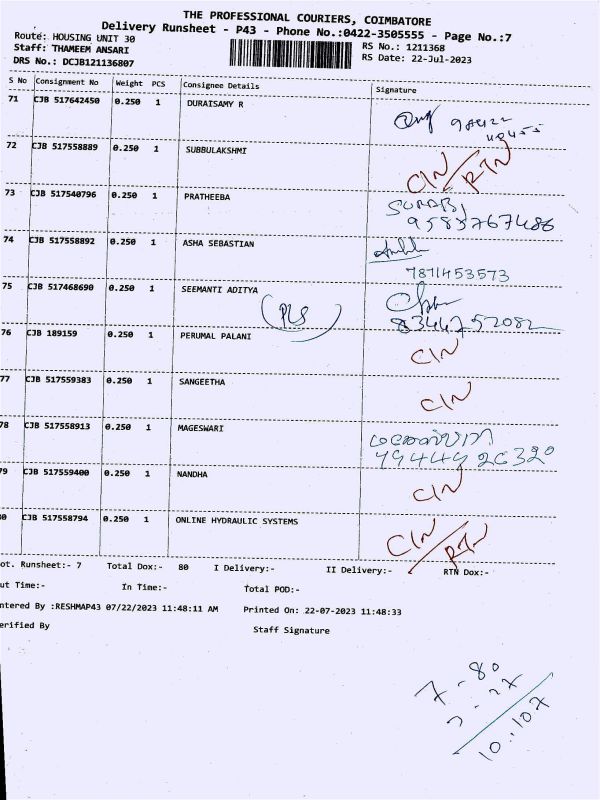 THE PROFESSIONAL COURIERS, COIMBATORE
Delivery Runsheet - P43 - Phone No.:0422-3505555 - Page No.:7
Route: HOUSING UNIT 30
Staff: THAMEEM ANSARI
DRS No.: DCJB121136807
RS No.: 1211368
RS Date: 22-Jul-2023
S No Consignment No Weight PCS Consignee Details Signature
71 CJB 517642450 0.250 1 DURAISAMY R
72 CJB 517558889 0.250 1 SUBBULAKSHMI CIN/RTN
73 CJB 517540796 0.250 1 PRATHEEBA
9585767486
74 CJB 517558892 0.250 1 ASHA SEBASTIAN
7871453573
75 CJB 517468690 0.250 1 SEEMANTI ADITYA
8344752082
76 CJB 189159 0.250 1 PERUMAL PALANI CIN
77 CJB 517559383 0.250 1 SANGEETHA CIN
78 CJB 517558913 0.250 1 MAGESWARI
79 CJB 517559400 0.250 1 NANDHA CIN
80 CJB 517558794 0.250 1 ONLINE HYDRAULIC SYSTEMS CIN/RTN
ot. Runsheet:- 7 Total Dox:- 80 I Delivery:- II Delivery:- RTN Dox:-
ut Time:- In Time:- Total POD:-
ntered By :RESHMAP43 07/22/2023 11:48:11 AM Printed On: 22-07-2023 11:48:33
erified By Staff Signature
7 - 80
3 - 27
10 - 107